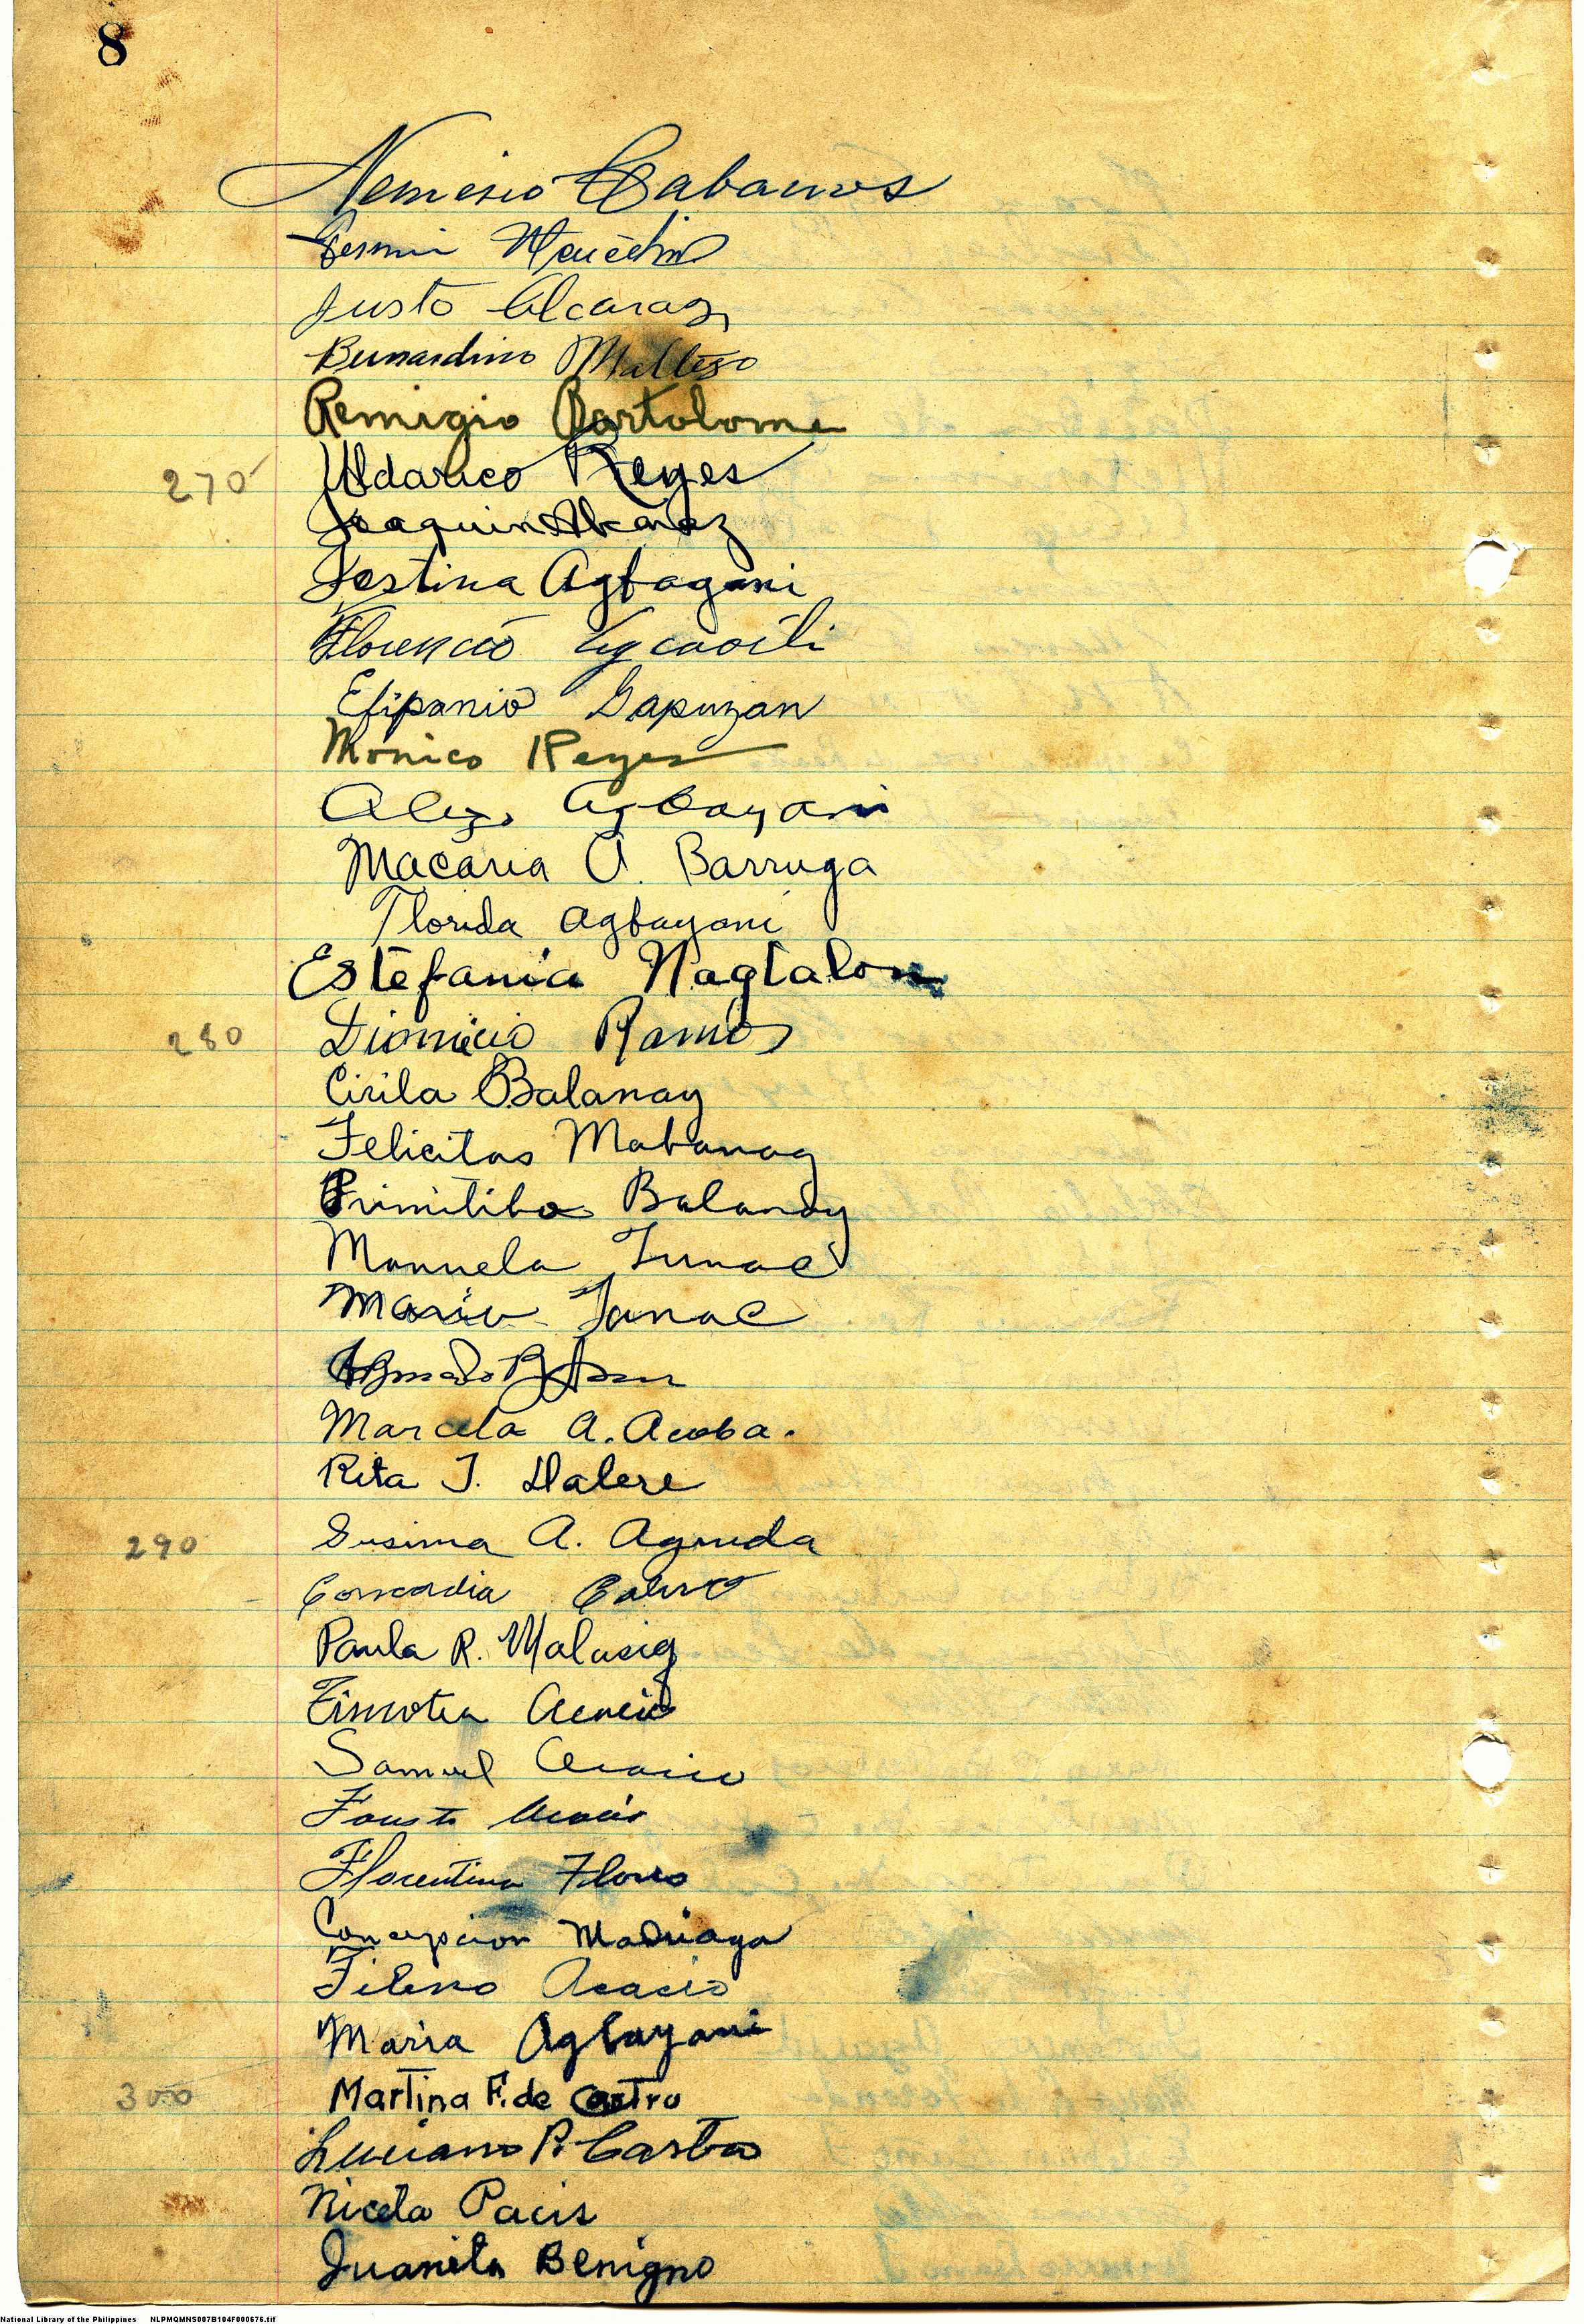 8
Nemesio Cabanos
Fermin
Justo Alcaraz
Bernardino
Remigio Bartolome
270 Uldarico Reyes
Joaquin Alcaraz
Festina Agbayani
Florencio Agcaoili
Efipanio Gapuzan
Monico Reyes
Alejo Agbayani
Macaria A. Barruga
Florida Agbayani
Estefania Nagtalon
280 Dionicio Ramos
Cirila Balanay
Felicitas Mabanag
Primitiba Balanay
Manuela Tunac
Maria Tunac
Marcela A. Acoba.
Rita J. Dalere
290 Susima A. Agruda
Concordia
Paula R. Malasig
Timotea Acacio
Samuel Acacio
Fausto Acacio
Florentina Flores
Concepcion Madriaga
Fileno Acacio
Maria Agbayani
300 Martina F. de Castro
Luciano P. Castro
Niceta Pacis
Juanita Benigno
National Library of the Philippines NLPMQMNS007B104F000676.tif